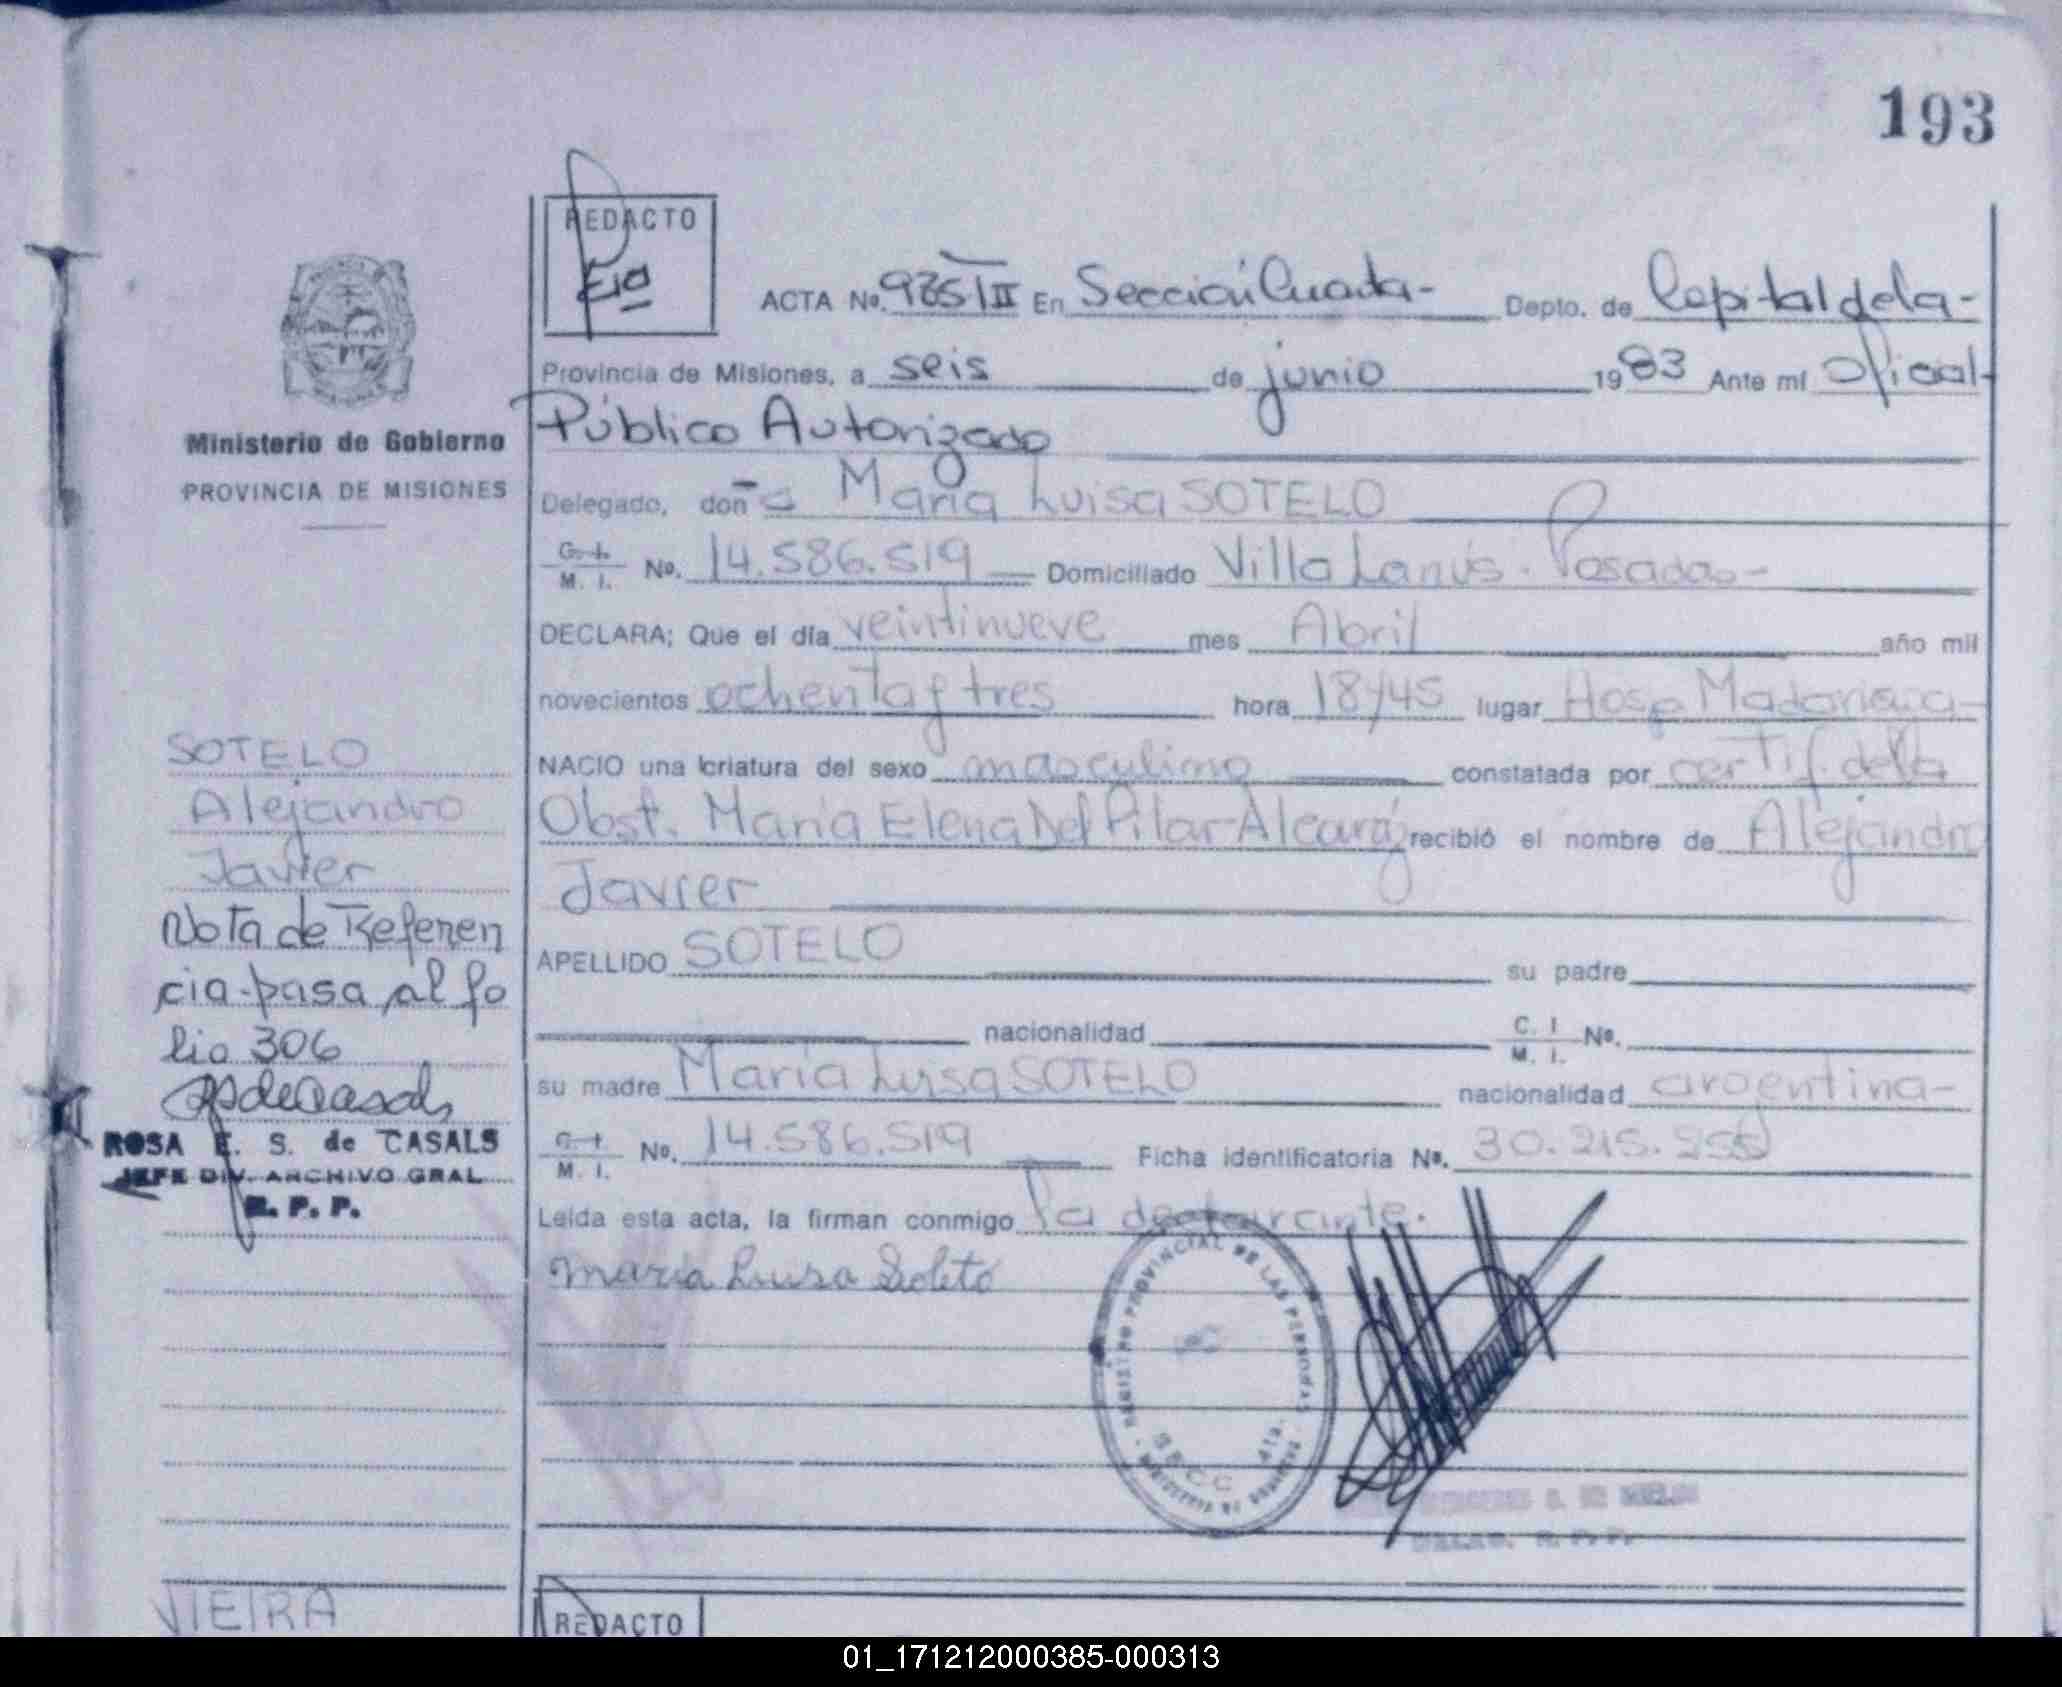 193
REDACTO
ACTA No. 985 III En Sección Cuarta - Depto. de Capital de la -
Provincia de Misiones, a seis de junio 1983 Ante mí Oficial -
Ministerio de Gobierno
PROVINCIA DE MISIONES
Público Autorizado
Delegado, doña María Luisa SOTELO
C. I. M. I. No. 14.586.519 Domiciliado Villa Lanús - Posadas -
DECLARA; Que el día veintinueve mes Abril año mil
novecientos ochenta y tres hora 18y45 lugar Hosp Madariaga -
NACIO una criatura del sexo masculino constatada por certif. de la
Obst. María Elena Del Pilar Alcaráz recibió el nombre de Alejandro
Javier
APELLIDO SOTELO su padre
nacionalidad C. I M. I. No.
su madre María Luisa SOTELO nacionalidad argentina -
C. I. M. I. No. 14.586.519 Ficha identificatoria No. 30.215.255
Leída esta acta, la firman conmigo la declarante.
maria Luisa Soleto
SOTELO
Alejandro
Javier
Nota de Referen
cia - pasa al fo
lio 306
ROSA E. S. de CASALS
JEFE DIV. ARCHIVO GRAL
R. P. P.
REGISTRO PROVINCIAL DE LAS PERSONAS
SECC 4ta.
MINISTERIO DE GOBIERNO
VIEIRA
REDACTO
01_171212000385-000313